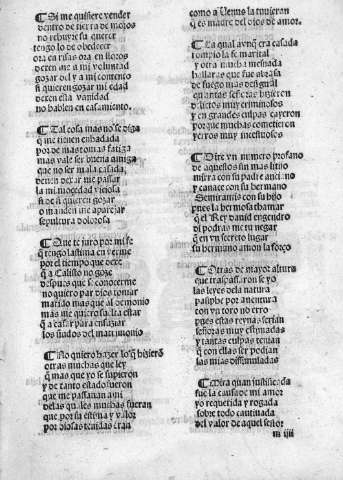 ¶ Si me quisiere vender
dentro de tierra de moros
no rehuyre su querer
tengo lo de obedecer
ora en risas ora en lloros
deren me a mi voluntad
gozar del y a mi contento
si quieren gozar mi edad
deren esta vanidad
no hablen en casamiento.
¶ Tal cosa mas no se diga
q̃ me tienen enhadada
por demas toman fatiga
mas vale ser buena amiga
que no ser mala casada,
deren deran me passar
la mi mocedad viciosa
si de si quieren gozar
o manden me aparejar
sepultura dolorosa
¶ Que te juro por mi fe
q̃ tengo lastima en verme
por el tiempo que dexe
q̃ a Calisto no goze
despues que se conocerme
no quiero par dios tomar
marido mas que al demonio
mas me quiero suelta estar
q̃ a casar para ensuziar
los ñudos del matrimonio
¶ No quiero hazer lo q̃ hiziero
otras muchas que ley
q̃ mas que yo se supieron
y de tanto estado fueron
que me passauan a mi
delas quales muchas fueran
que por su estima y valor
por diosas tenidas eran
como a Venus la tuuieran
q̃ es madre del dios de amor.
¶ La qual aun q̃ era casada
rompio la fe marital
y otra mucha mesnada
hallaras que fue abrasada
de fuego mas desigual
quantas señoras hizieron
delitos muy criminosos
y en grandes culpas cayeron
por que muchas cometieron
yerros muy incestuosos
¶ Dire yn numero profano
de aquestos sin mas litijo
mirra con su padre anciano
y canace con su hermano
Semiramis con su hijo
pues la hermosa thamar
q̃ el Rey dauid engendro
di podras me tu negar
que en vn secreto lugar
su hermano amon la forço
¶ Otras de mayor altura
que traspassaron se yo
las leyes dela natura
pasiphe por auentura
con vn toro no erro
pues estas reynas serian
señoras muy estimadas
y tantas culpas tenian
q̃ con ellas ser podian
las mias dissimuladas
¶ Mira quan justificada
fue la causa de mi amor
yo requerida y rogada
sobre todo catiuada
del valor de aquel señor
m iiij